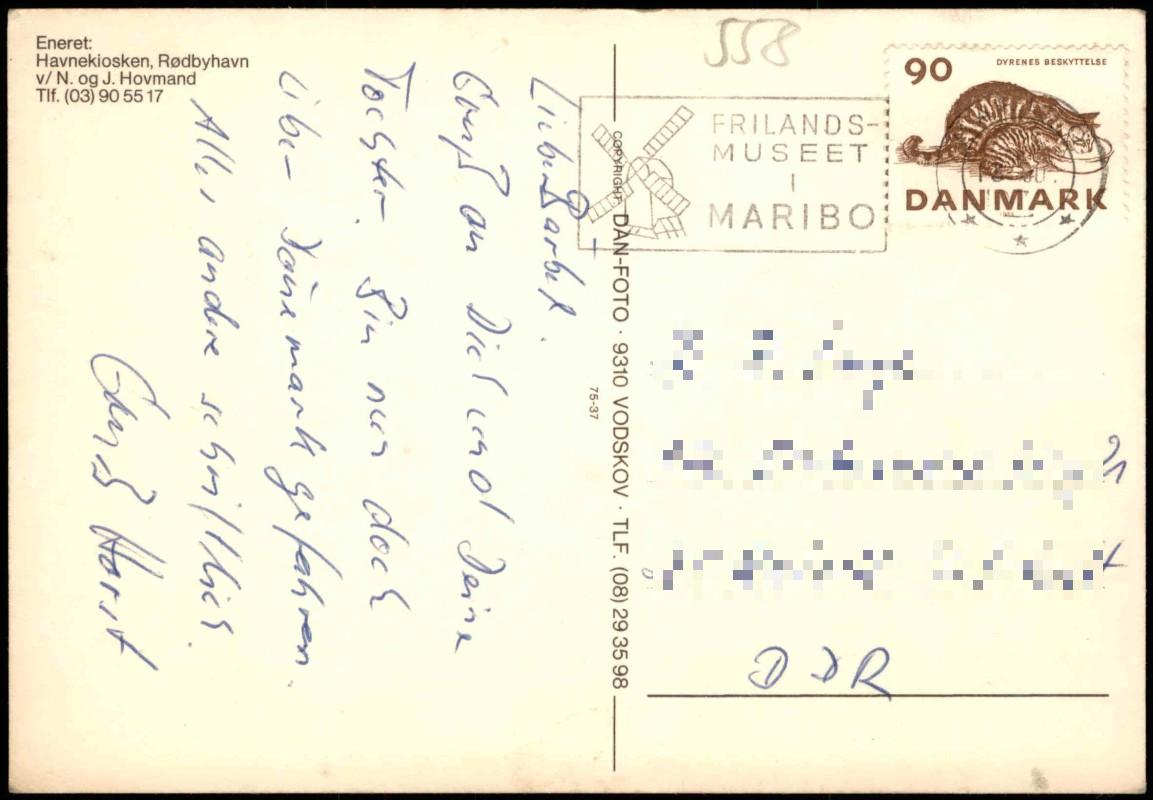 Eneret:
Havnekiosken, Rødbyhavn
v/ N. og J. Hovmand
Tlf. (03) 90 55 17
558
90
DYRENES BESKYTTELSE
DANMARK
FRILANDS-
MUSEET
I
MARIBO
COPYRIGHT: DAN-FOTO · 9310 VODSKOV · TLF. (08) 29 35 98
75-37
Gruß an Dich und Deine
Tochter. Bin nun doch
über Dänemark gefahren.
Alles andere schriftlich.
Gruß Horst
DDR